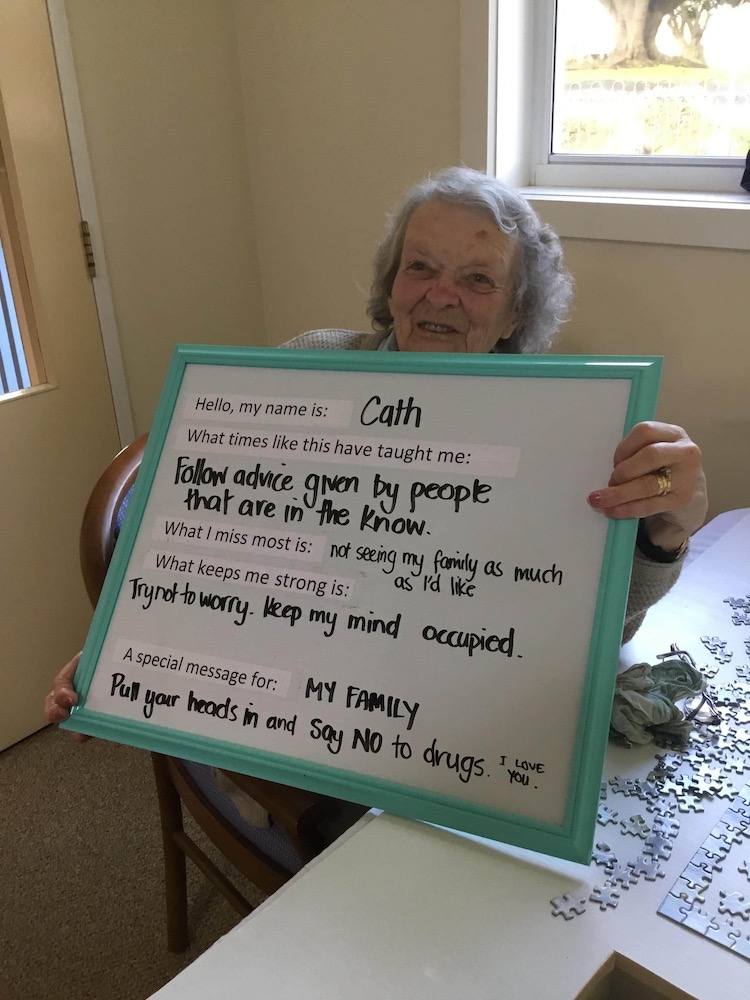 Hello, my name is: Cath
What times like this have taught me:
Follow advice given by people
that are in the know.
What I miss most is: not seeing my family as much
as I'd like
What keeps me strong is:
Try not to worry. Keep my mind occupied.
A special message for: MY FAMILY
Pull your heads in and Say NO to drugs. I LOVE
YOU.